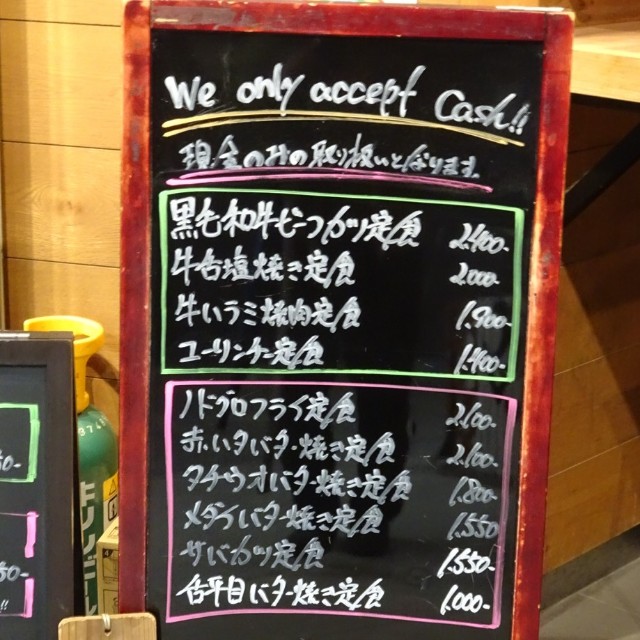 We only accept Cash!!
現金のみの取り扱いとなります。
黒毛和牛ビーフカツ定食 2.400-
牛舌塩焼き定食 2.000-
牛ハラミ焼肉定食 1.900-
ユーリンチー定食 1.400-
ノドグロフライ定食 2.100-
赤いタバター焼き定食 2.100-
タチウオバター焼き定食 1.800-
メダイバター焼き定食 1.550
サバカツ定食 1.550-
舌平目バター焼き定食 1.000-
キリンビール